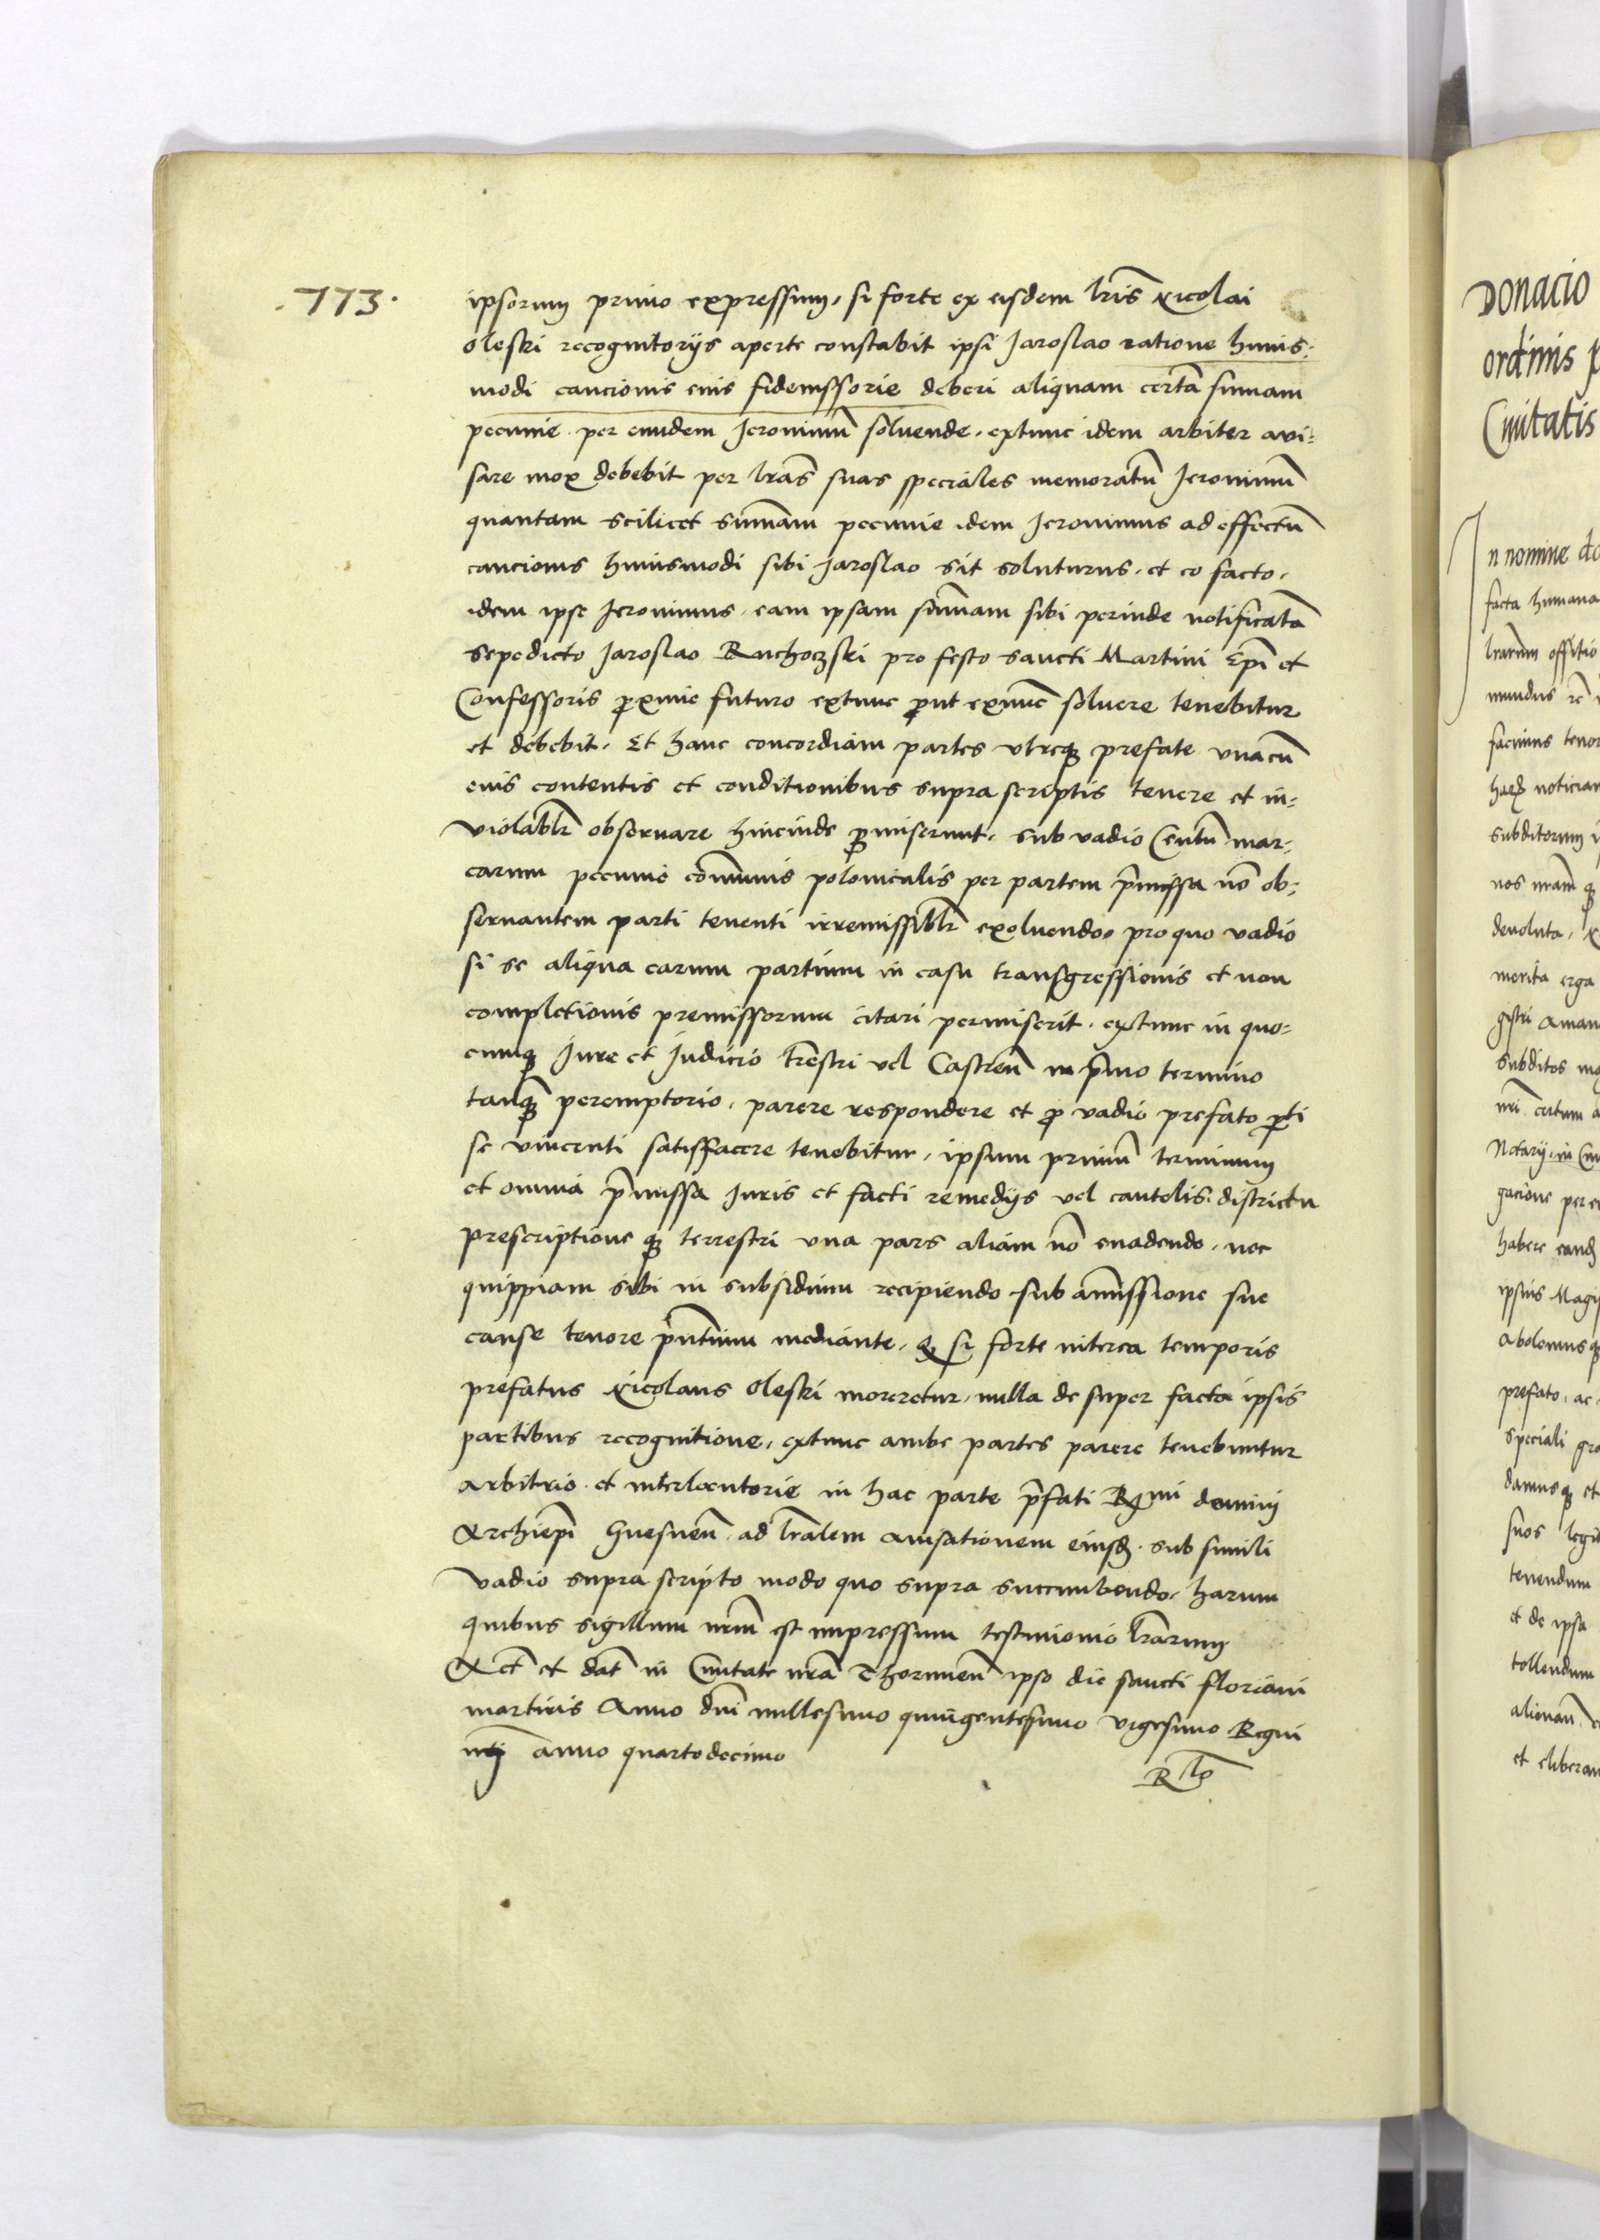 .773.
ipsorum primo expressum, si forte ex eisdem lris Nicolai
oleski recognitorijs aperte constabit ipsi Jaroslao ratione huius:
modi caucionis eius fideiussorie deberi aliquam certā summam
pecunie per eundem Jeronimū soluende, extunc idem arbiter avi:
sare mox debebit per lras suas speciales memoratū Jeronimū
quantam scilicet sūmam pecunie idem Jeronimus ad effectū
caucionis huiusmodi sibi Jaroslao sit soluturus, et eo facto,
idem ipse Jeronimus, eam ipsam sūmam sibi perinde notificatā
sepedicto Jaroslao Ruchoczski pro festo sancti Martini Epī et
Confessoris proxime futuro extunc prout exnunc soluere tenebitur
et debebit. Et hanc concordiam partes vtreque prefate vnacū
eius contentis et conditionibus supra scriptis tenere et in:
violablr obseruare hincinde promiserunt, sub vadio Centū mar:
carum pecunie cōmunis polonicalis per partem pmissa nō ob:
seruantem parti tenenti irremissiblr exoluendo, pro quo vadio
si se aliqua earum partium in casu transgressionis et non
completionis premissorum citari permiserit, extunc in quo:
cunque Jure et Judicio trestri vel Castreñ in pmo termino
tanque peremptorio, parere respondere et pro vadio prefato parti
se vincenti satisfacere tenebitur, ipsum primū terminum
et omnia pmissa Juris et facti remedijs vel cautelis, districtu
prescriptione que terrestri vna pars aliam nō euadendo, nec
quippiam sibi in subsidium recipiendo sub amissione sue
cause tenore pntium mediante, Et si forte interea temporis
prefatus Nicolaus oleski moreretur, nulla de super facta ipsis
partibus recognitione, extunc ambe partes parere tenebuntur
arbitrio et interlocutorie in hac parte pfati Rmi domini
Archiepi Gnesneñ ad lralem avisationem eiusdem, sub simili
vadio supra scripto modo quo supra succumbendo, harum
quibus sigillum nrm est impressum testimonio lrarum
Act et dat in Ciuitate nra Thoruneñ ipso die sancti floriani
martiris Anno dni millesimo quingentesimo vigesimo Regni
nri anno quartodecimo
Rlo
Donacio
ordinis
Ciuitatis
In nomine
facta humana
lrarum offitio
mundus
facimus
noticiam
subditorum
nos nram
deuoluta,
merita erga
subditos
Notarij, in
gacione per
habere
ipsius
abolemus
prefato, ac
speciali
damus et
suos
tenendum
et de ipsa
tollendum
et